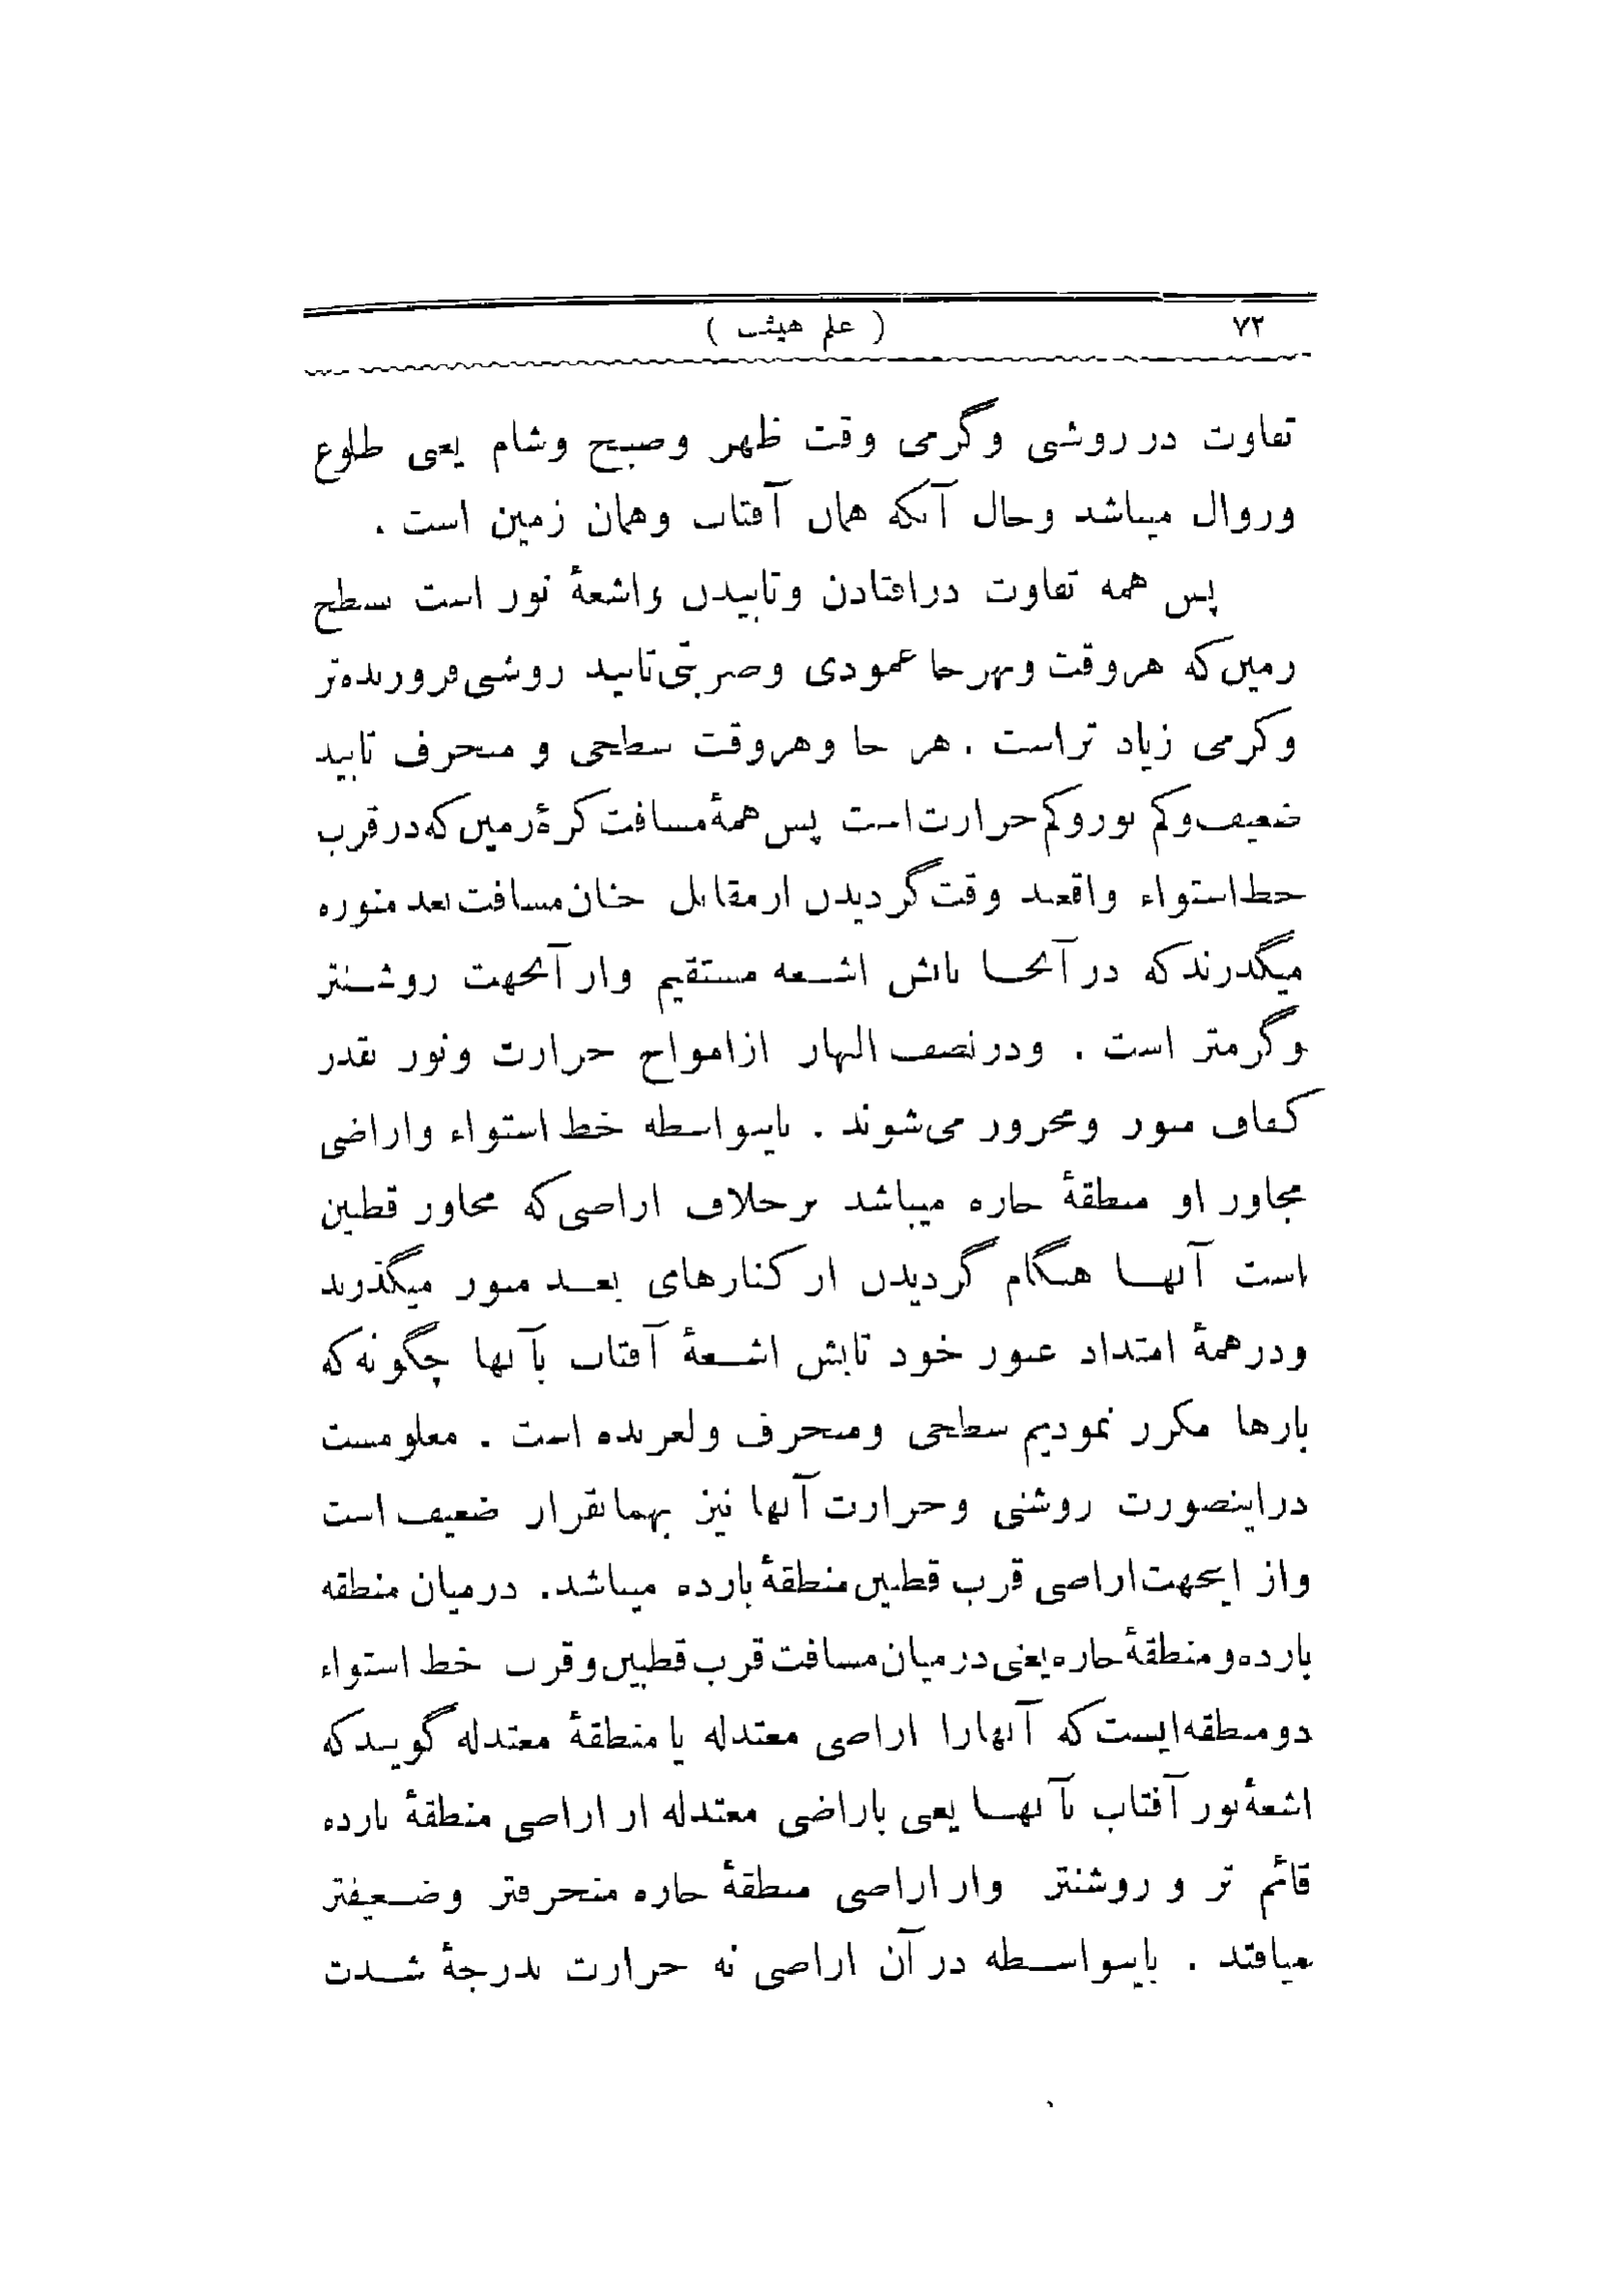 ۷۲ ( علم هیئت )
تفاوت در روشنی وگرمی وقت ظهر وصبح وشام یعنی طلوع
وزوال میباشد وحال آنکه همان آفتاب وهمان زمین است .
پس همه تفاوت درافتادن وتابیدن واشعهٔ نور است سطح
زمین که هروقت وبهرجا عمودی وضربتی تابید روشنی فروزنده‌تر
وکرمی زیاد تراست . هر جا وهروقت سطحی و منحرف تابید
ضعیف وکم نوروکم حرارت است پس همهٔ مسافت کرهٔ زمین که در قرب
خط استواء واقعند وقت گردیدن ازمقابل چنان مسافت بعد منوره
میگذرند که در آنجا تابش اشعه مستقیم واز آنجهت روشنتر
وگرمتر است . ودر نصف النهار ازامواج حرارت ونور بقدر
کفاف منور ومحرور می‌شوند . باینواسطه خط استواء واراضی
مجاور او منطقهٔ حاره میباشد برخلاف اراضی که مجاور قطبین
است آنها هنگام گردیدن از کنارهای بعد منور میگذرند
ودر همهٔ امتداد عبور خود تابش اشعهٔ آفتاب بآنها چگونه که
بارها مکرر نمودیم سطحی ومنحرف ولغزنده است . معلومست
دراینصورت روشنی وحرارت آنها نیز بهمانقرار ضعیف است
واز اینجهت اراضی قرب قطبین منطقهٔ بارده میباشد . درمیان منطقه
بارده ومنطقهٔ حاره یعنی درمیان مسافت قرب قطبین وقرب خط استواء
دومنطقه ایست که آنهارا اراضی معتدله یا منطقهٔ معتدله گویند که
اشعهٔ نور آفتاب بآنها یعنی باراضی معتدله از اراضی منطقهٔ بارده
قائم تر و روشنتر واز اراضی منطقهٔ حاره منحرفتر وضعیفتر
میافتد . باینواسطه در آن اراضی نه حرارت بدرجهٔ شدت